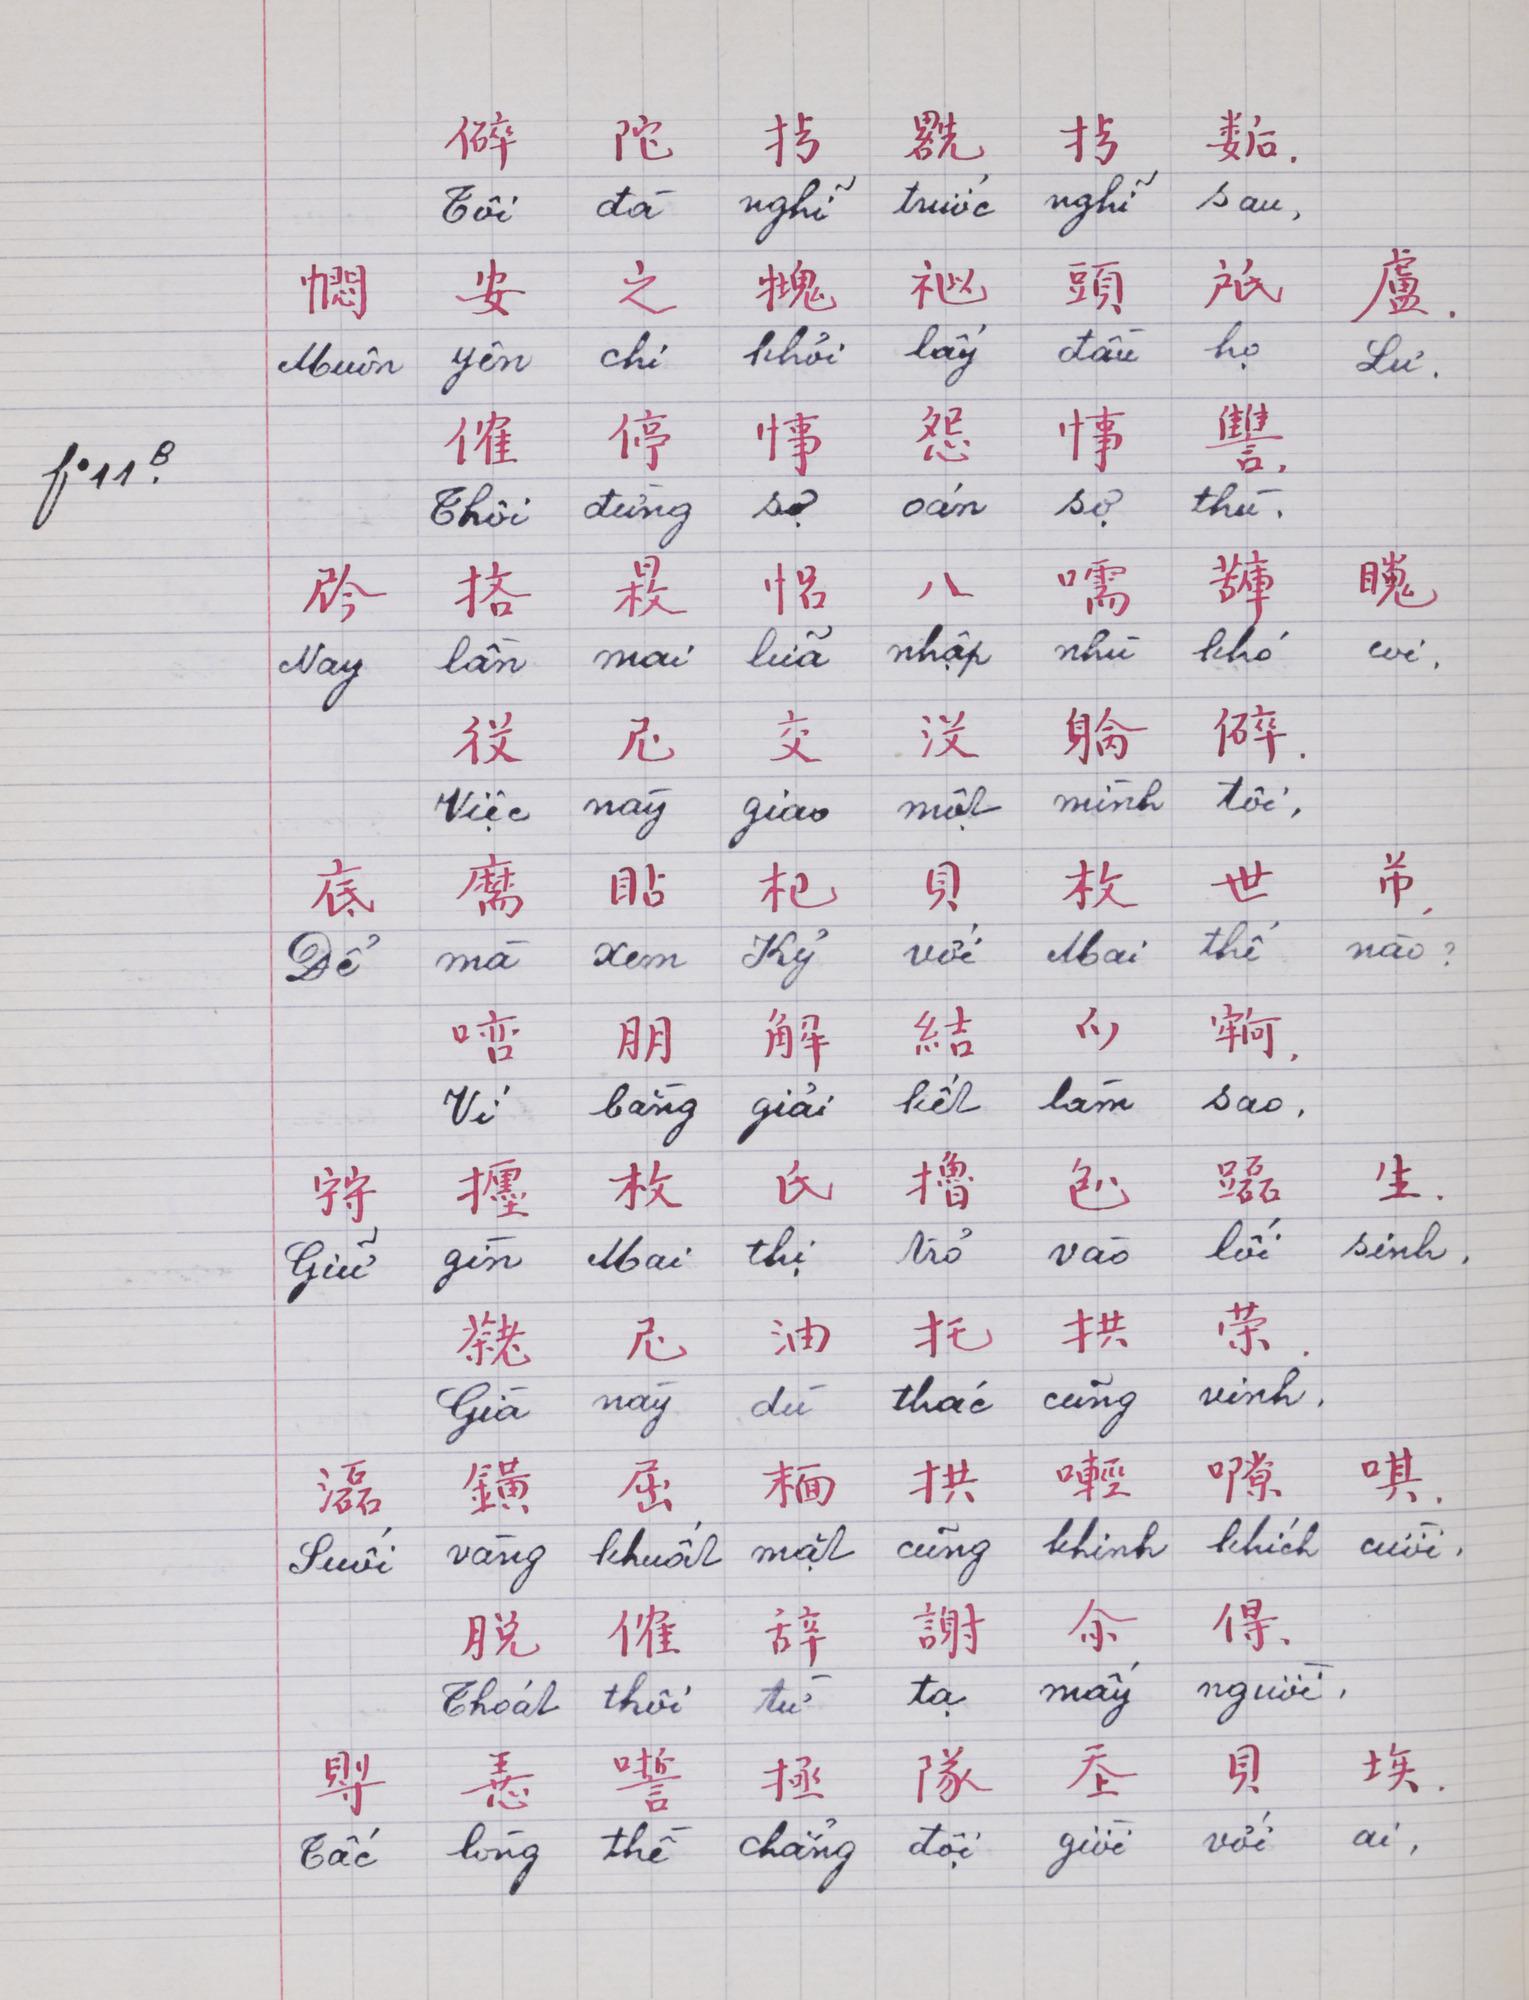 碎 陀 𢪀 𠓀 𢪀 𡢐.
Tôi đã nghĩ trước nghĩ sau,
憫 安 之 塊 祂 頭 𢩽 盧.
Muôn yên chi khỏi lấy đầu họ Lư.
催 停 事 怨 事 讐.
f° 11 B.
Thôi đừng sợ oán sợ thù.
𫢩 㨋 枚 㤢 八 嚅 𧁷 𥋳
Nay lần mai lữa nhập nhù khó coi,
役 尼 交 没 躺 碎.
Việc này giao một mình tôi,
底 麻 貼 杞 貝 枚 世 芇.
Để mà xem Kỷ với Mai thế nào?
㗂 朋 解 結 𫜵 𡫡.
Ví bằng giải kết làm sao,
𡨹 㨷 枚 氏 擼 𠓨 𨇒 生.
Giữ gìn Mai thị trở vào lối sinh.
𦓅 尼 油 托 拱 荣.
Già này dù thác cũng vinh,
㵢 鐄 屈 𩈘 拱 輕 隙 唭.
Suối vàng khuất mặt cũng khinh khích cười.
脱 催 辞 謝 尒 得.
Thoát thôi từ tạ mấy người,
𡬷 𢚸 誓 拯 隊 𡗶 貝 埃.
Tấc lòng thề chẳng đội giời với ai,